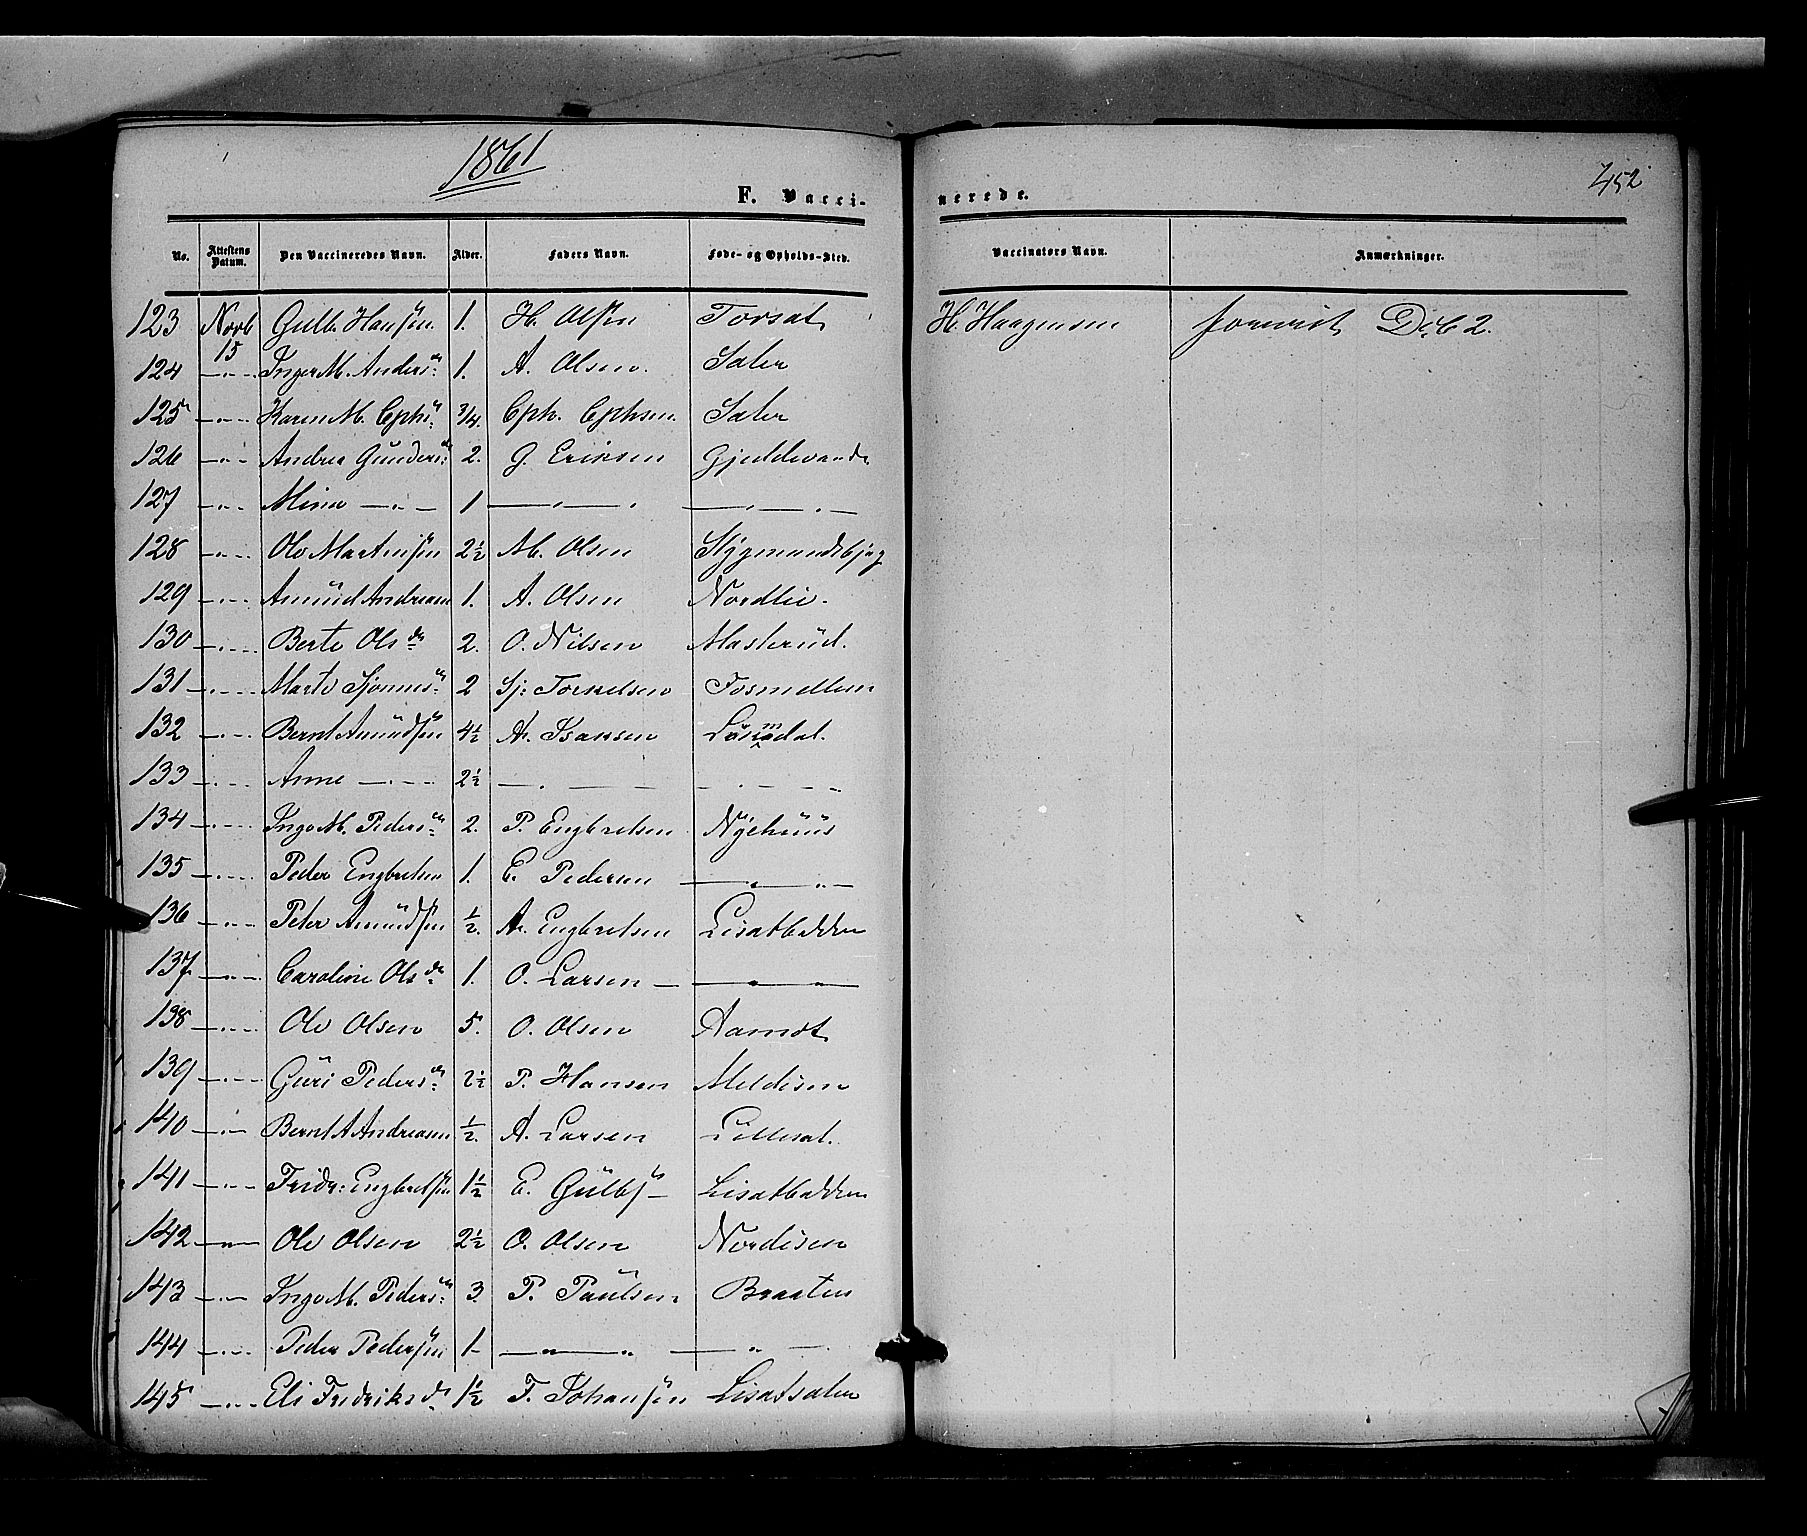 1861
452
F. Vaccinerede.
No. Attestens Datum. Den Vaccineredes Navn. Alder. Faders Navn. Føde- og Opholds-Sted. Vaccinators Navn. Anmærkninger.
123 Novb 15 Gulb. Hansen 1. H. Olsen Torsæt H. Haagensen forevist Dec 2.
124 —„— Inger M. Andersdr 1. A. Olsen. Sæter
125 —„— Karen M. Ephsdr 3/4. Eph. Ephsen. Sæter
126 —„— Andrea Gundersdr 2. G. Eriksen
127 —„— Mina —„— 1 —„—„ —„—„—
128 —„— Ole Martinsen 2½ M. Olsen
129 —„— Amund Andreasen 1. A. Olsen Nordlie.
130 —„— Berte Olsdr 2. O. Nilsen Masterud.
131 —„— Marte Sjønnesdr 2 Sj: Torkelsen Fosmellem
132 —„— Bernt Amundsen 4½ A. Isaksen
133 —„— Anne —„— 2½ —„— —„—
134 —„— Inge M. Pedersdr 2. P. Engbretsen Nyehuus
135 —„— Peder Engbretsen 1. E. Pedersen —„—„—
136 —„— Peter Amundsen ½. A. Engbretsen Lisætbakken
137 —„— Caroline Olsdr 1. O. Larsen —„—„—
138 —„— Ole Olsen 5. O. Olsen Aamot
139 —„— Guri Pedersdr 2½ P. Hansen Meldisen
140 —„— Bernt A Andreasen ½. A. Larsen Lillesæt.
141 —„— Fridr: Engbretsen 1½ E. Gulbs— Lisætbakken
142 —„— Ole Olsen 2½ O. Olsen Nordisen
143 —„— Inge M. Pedersdr 3. P. Paulsen Braaten
144 —„— Peder Pedersen 1 —„—„ —„—
145 —„— Eli Fredriksdr 1½ F. Johansen Lisætsæter